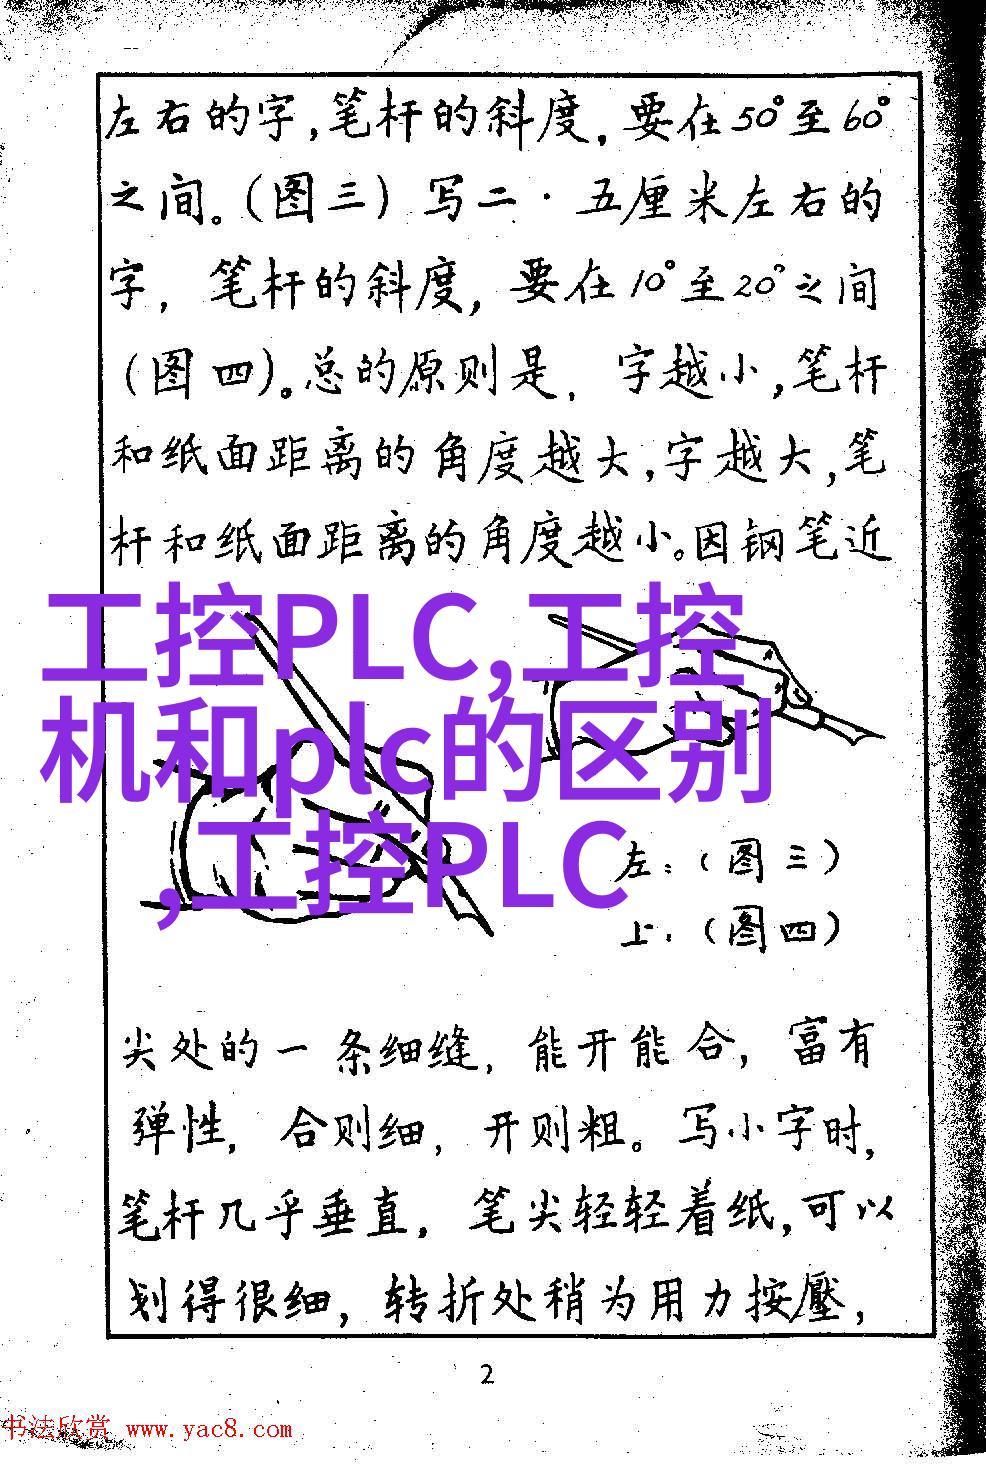 左右的字,笔杆的斜度,要在50°至60°
之间。(图三)写二·五厘米左右的
字,笔杆的斜度,要在10°至20°之间
(图四)。总的原则是,字越小,笔杆
和纸面距离的角度越大,字越大,笔
杆和纸面距离的角度越小。因钢笔近
工控PLC,工控
机和plc的区别
,工控PLC
左:(图三)
上:(图四)
尖处的一条细缝,能开能合,富有
弹性,合则细,开则粗。写小字时,
笔杆几乎垂直,笔尖轻轻着纸,可以
划得很细,转折处稍为用力按壓,
2
书法欣赏 www.yac8.com